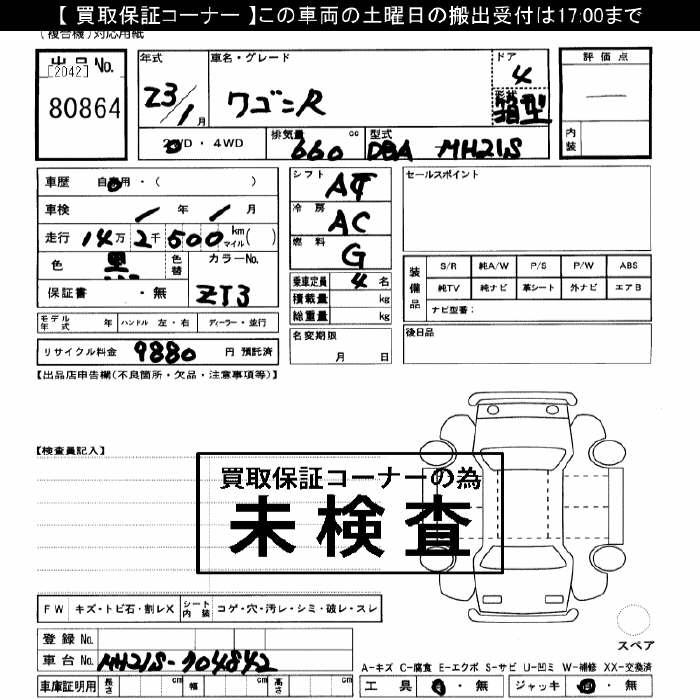 【 買取保証コーナー 】この車両の土曜日の搬出受付は17:00まで
(複合機)対応用紙
出品No.
[2042]
80864
年式
23年1月
車名・グレード
ワゴンR
ドア
4
形状
箱型
評価点
内装
2WD・4WD
排気量
660 cc
型式
DBA MH21S
車歴 自家用・( )
車検 年 月
走行 14万2千500 km マイル( )
色 黒
色替
カラーNo.
ZJ3
保証書 ・無
シフト
AT
冷房
AC
燃料
G
乗車定員 4名
積載量 kg
総重量 kg
名変期限
月 日
セールスポイント
装備品
S/R 純A/W P/S P/W ABS
純TV 純ナビ 革シート 外ナビ エアB
ナビ型番:
後日品
モデル年式 年 ハンドル 左・右 ディーラー・並行
リサイクル料金 9880 円 預託済
【出品店申告欄(不良箇所・欠品・注意事項等)】
【検査員記入】
買取保証コーナーの為
未検査
FW キズ・トビ石・割レX シート内装 コゲ・穴・汚レ・シミ・破レ・スレ
登録 No.
車台 No. MH21S-704842
車庫証明用 長さ cm 幅 cm 高さ cm
スペア
A-キズ C-腐食 E-エクボ S-サビ U-凹ミ W-補修 XX-交換済
工具 ・無 ジャッキ ・無